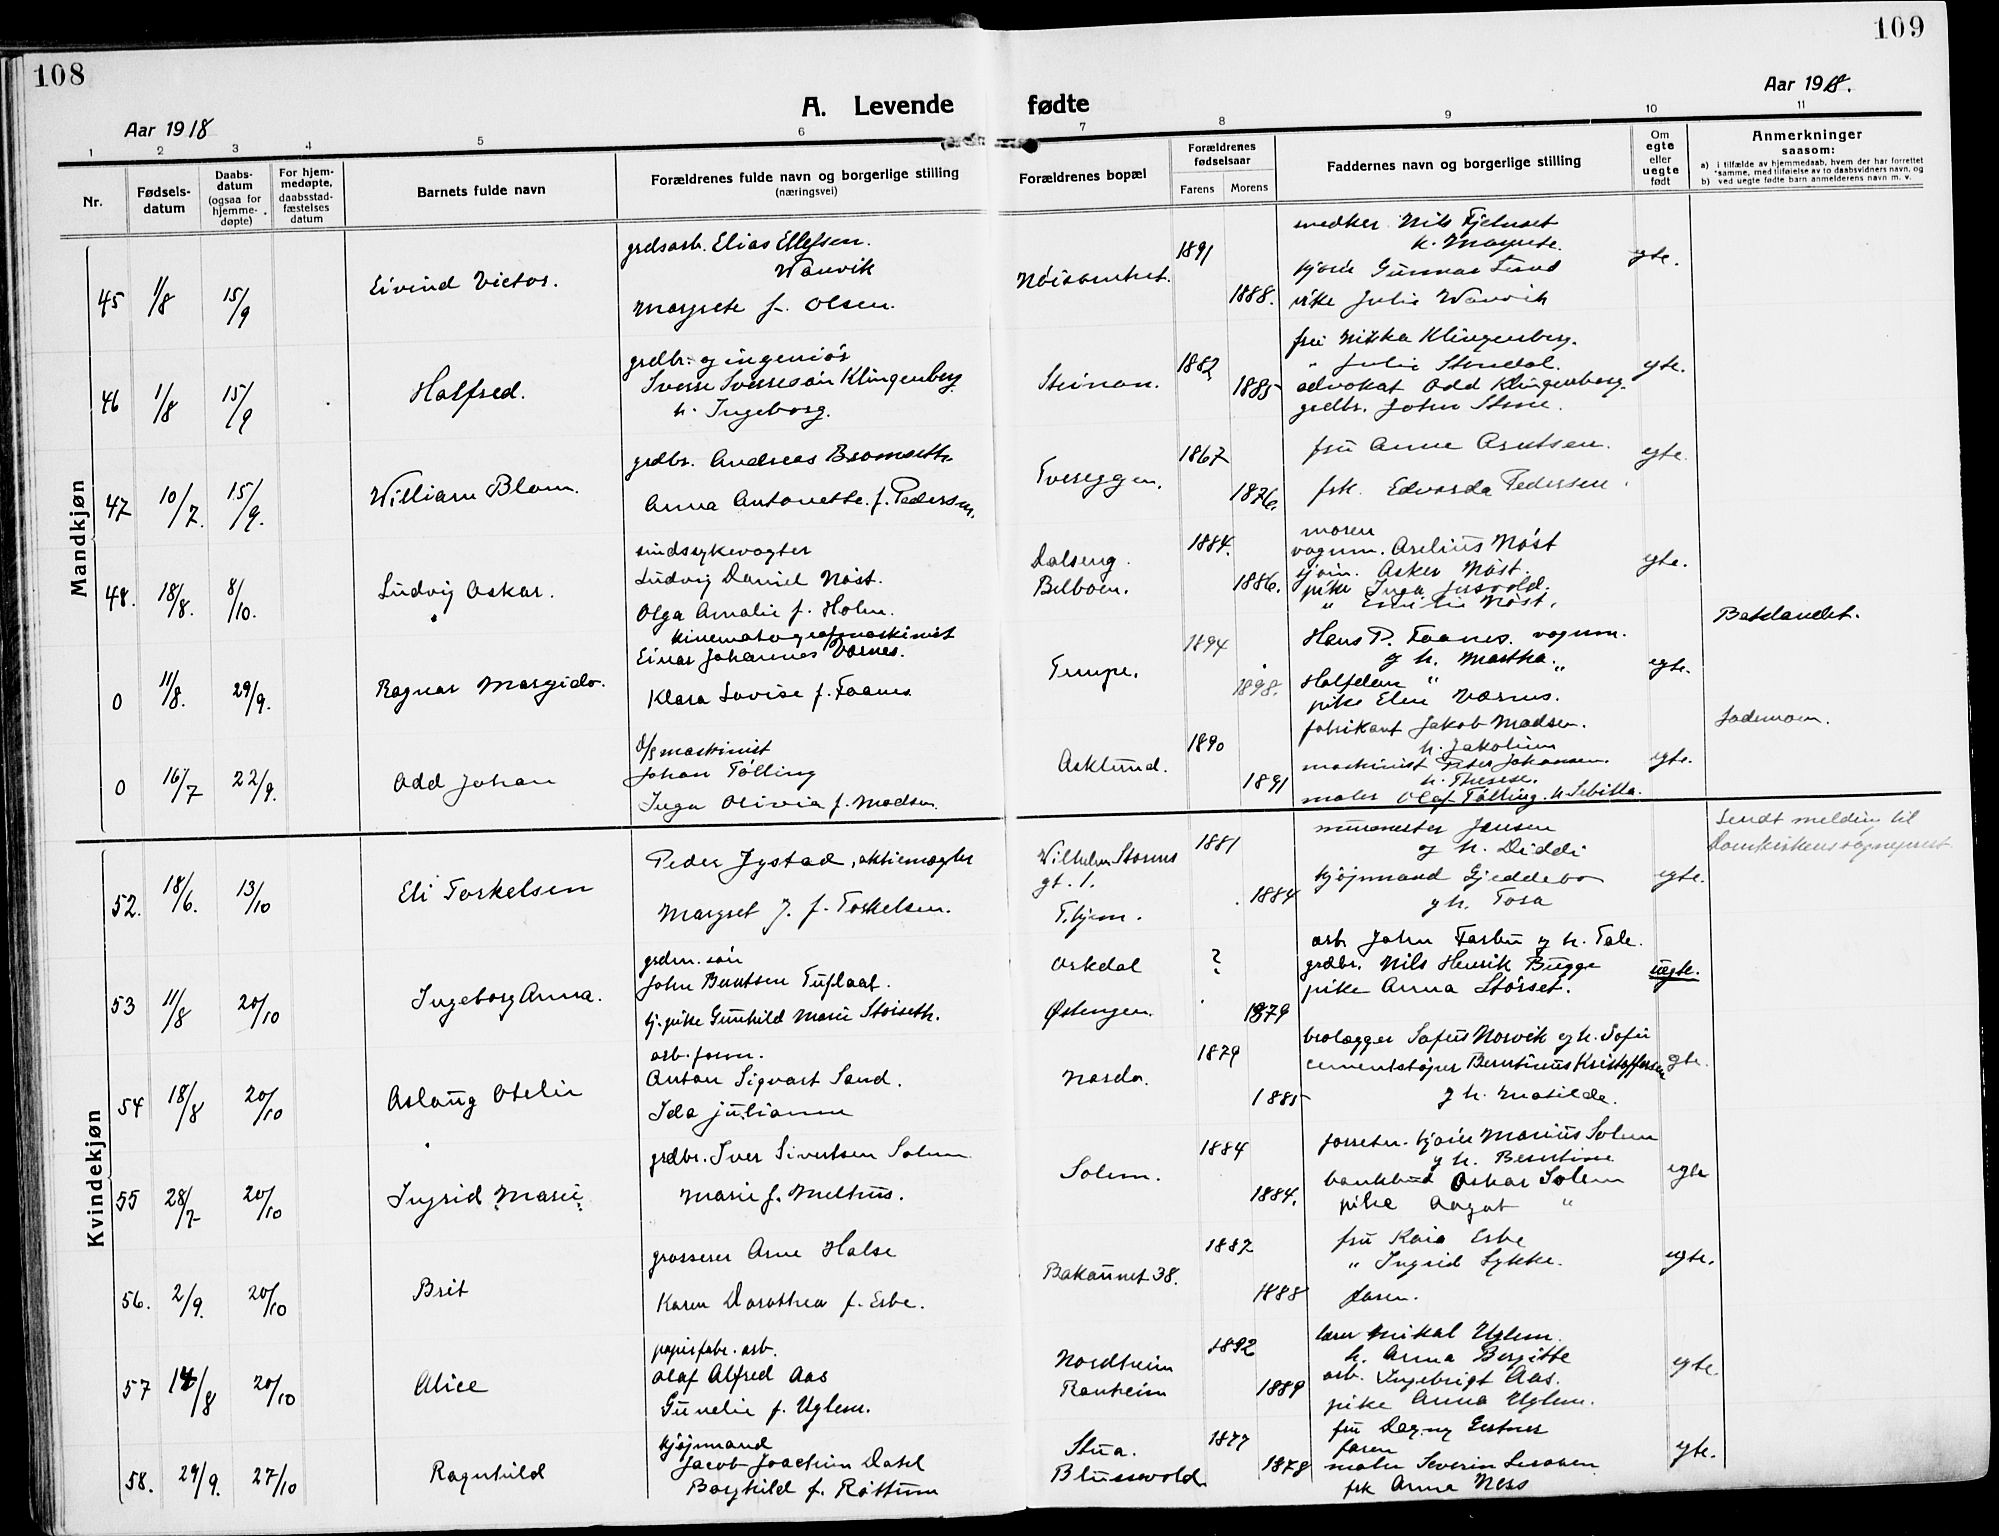 108
109
A. Levende fødte
Aar 1918
Aar 1918.
1 2 3 4 5 6 7 8 9 10 11
Nr.
Fødsels-
datum
Daabs-
datum
(ogsaa for
hjemme-
døpte)
For hjem-
medøpte,
daabsstad-
fæstelses
datum
Barnets fulde navn
Forældrenes fulde navn og borgerlige stilling
(næringsvei)
Forældrenes bopæl
Forældrenes
fødselsaar
Farens Morens
Faddernes navn og borgerlige stilling
Om
egte
eller
uegte
født
Anmerkninger
saasom:
a) i tilfælde av hjemmedaab, hvem der har forrettet
samme, med tilføielse av to daabsvidners navn, og
b) ved uegte fødte barn anmelderens navn m. v.
Mandkjøn
45 1/8 15/9 Eivind Victor.
grdsarb. Elias Ellefsen
Wanvik
Margrete f. Olsen.
1891
1888.
Nils
k. Margrete.
Gunnar
Julie Wanvik
egte.
46 1/8 15/9 Halfred.
grdbr. og ingeniør
Sverre Sverresøn Klingenberg
h. Ingeborg.
Steinan.
1882
1885
fru Klingenberg.
" Julie Stendal.
advokat Odd Klingenborg.
grdbr. John Stene.
egte.
47 10/7. 15/9. William Blom.
grdbr. Andreas Bromseth
Anna Antonette f. Pedersen.
Tvereggen.
1867
1876.
fru Anne Arntsen.
frk. Edvarda Pedersen.
egte.
48. 18/8. 8/10. Ludvig Oskar.
sindssykevogter
Ludvig Daniel Nøst.
Olga Amalie f. Holm.
Dalseng.
Belboen.
1884.
1886.
moren
vognm. Arelius Nøst
Asker Nøst.
pike Inga
" Emilie Nøst.
egte.
0 11/8. 29/9. Ragnar Margido.
kinematografmaskinist
Einar Johannes Værnes.
Klara Lovise f. Faanes
Tempe.
1894
1898.
Hans P. Faanes. vognm.
og h. Martha "
Halfdan "
pike Elen Værnes.
egte.
Baklandet.
0 16/7 22/9. Odd Johan
d/s maskinist
Johan Tølling
Inga Olivia f. Madsen
Asklund.
1890
1891
fabrikant Jakob Madsen.
h. Jakobine
maskinist Peter Johansen.
h. Therese.
maler Olaf Tølling. h.
egte.
Lademoen.
Kvindekjøn
52. 18/6. 13/10 Eli Torkelsen
Peder Jystad,
Margret J. f. Torkelsen.
Wilhelm Storms
gt. 1.
T.hjem.
1881
1884
murmester Jensen
og h. Diddi
kjøpmand Gjeddebo
og h. Tora
egte.
Sendt melding til
Domkirkens sogneprest
53 11/8 20/10 Ingeborg Anna.
grdm. søn
John Berntsen
tj. pike Gunhild Marie Støiseth.
Orkdal
Østengen.
?
1879
arb. John Farbu og h. Tale.
grdbr. Nils Henrik Bugge
pike Anna Størset.
uegte.
54 18/8 20/10 Aslaug Otelie
arb. form.
Anton Sigvart Sand.
Ida Julianne
Nardo.
1879
1885
brolægger Sofus Norvik og h. Sofie
cementstøper Berntinus Kristoffersen
og h. Matilde.
egte.
55 28/7 20/10 Ingrid Marie.
grdbr. Iver Sivertsen Solem
Marie f. Melhus.
Solem.
1884
1884.
Marius Solem
og h. Berntine
bankbud Oskar Solem
pike Aagot "
egte
56. 2/9. 20/10 Brit
grosserer Arne Halse
Karen Dorothea f. Erbe.
Bakaunet 38.
1882
1888
fru Kaia Erbe
" Ingrid Lykke.
faren.
egte.
57 14/8 20/10 Alice
papirfabr. arb.
Olaf Alfred Aas
Gunelie f. Uglem.
Nordheim
Ranheim
1892
1889
lærer Mikal Uglem.
h. Anna Bergitte
arb. Ingebrigt Aas.
pike Anna Uglem.
egte.
58. 29/9. 27/10 Ragnhild
kjøpmand
Jacob Joachim Dahl
Borghild f. Røttum
Stua.
Blussuvold
1877
1878
fru Dagny
faren
maler Severin
frk Anna Ness
egte.